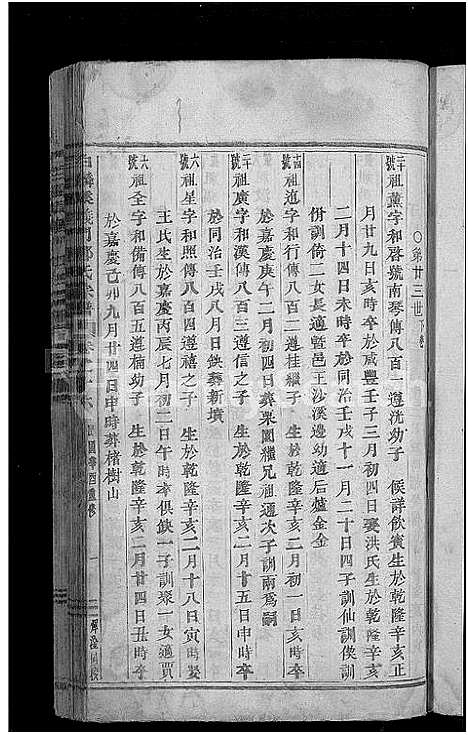 ○第廿三世
二十號祖薰字和啓號南琴傳八百一遵洗幼子 候詳飲賓生於乾隆辛亥正
月廿九日亥時卒於咸豐壬子三月初四日娶洪氏生於乾隆辛亥
二月十四日未時卒於同治壬戌十一月二十日四子訓仙訓俟訓
併訓倚二女長適暨邑王沙溪邊幼適后爐金金
號祖進字和行傳八百二遵桂繼子 生於乾隆辛亥二月初一日亥時卒
於嘉慶庚午二月初四日葬眾園繼兄祖通次子訓雨為嗣
二十號祖廣字和溪傳八百三遵信之子 生於乾隆辛亥二月十五日申時卒
於同治壬戌八月日歿葬新墳
六號祖星字和 傳八百四遵禧之子 生於乾隆辛亥二月十八日寅時娶
王氏生於嘉慶丙辰七月初二日午時卒俱缺一子訓琮一女適賈
六號祖全字和備傳八百五遵楠幼子 生於乾隆辛亥二月廿四日丑時卒
於嘉慶己卯九月廿四日申時葬楮樹山
義門鄭氏宗譜